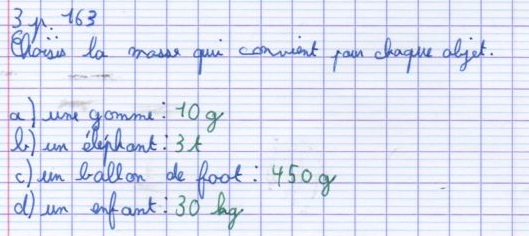 3 p. 163
Choisis la masse qui convient pour chaque objet.
a) une gomme : 10 g
b) un éléphant : 3 t
c) un ballon de foot : 450 g
d) un enfant : 30 kg